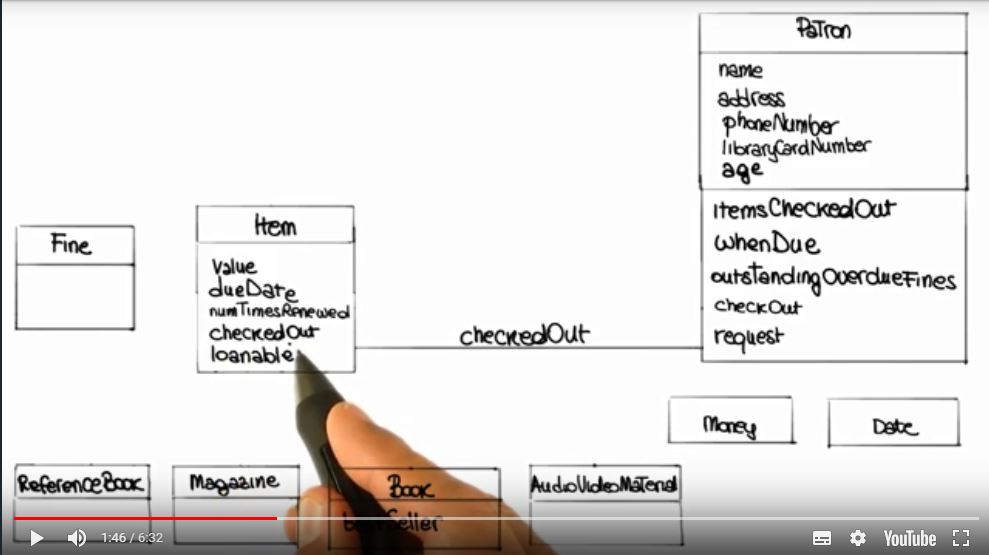 Patron
name
address
phoneNumber
libraryCardNumber
age
itemsCheckedOut
whenDue
outstandingOverdueFines
checkOut
request
Fine
Item
value
dueDate
numTimesRenewed
checkedOut
loanable
checkedOut
Money
Date
ReferenceBook
Magazine
Book
AudioVideoMaterial
1:46 / 6:32
YouTube